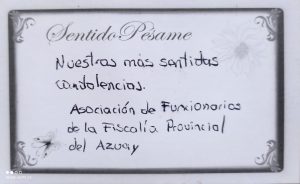 Sentido Pésame
Nuestras más sentidas
condolencias.
Asociación de Funcionarios
de la Fiscalía Provincial
del Azuay